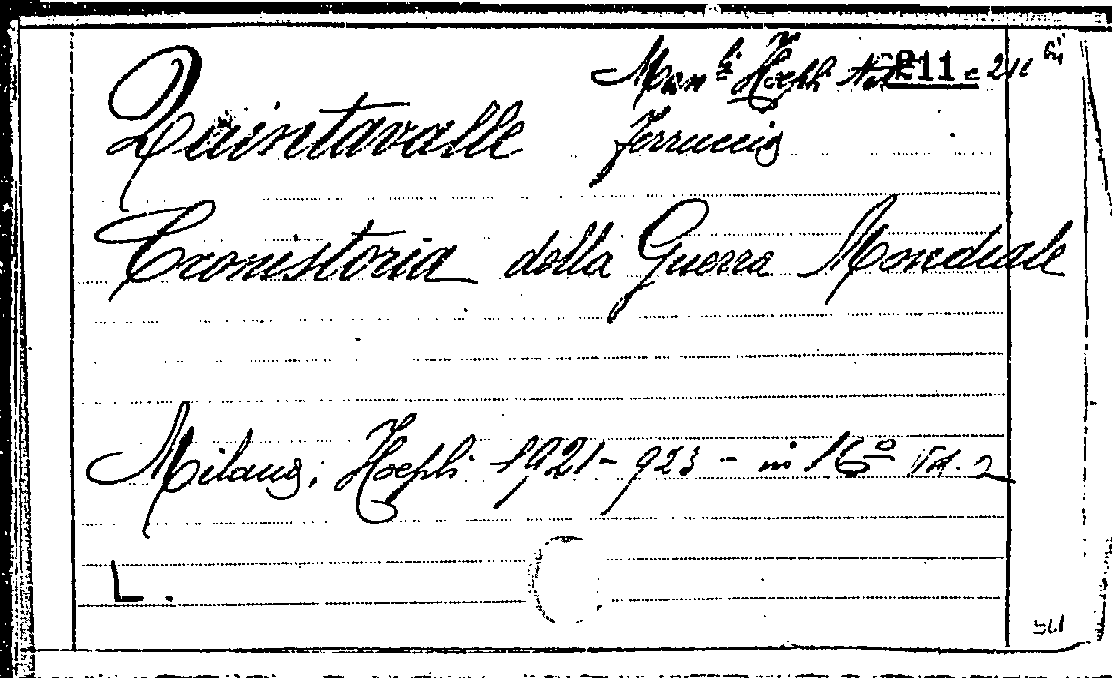 Man.li Hoepli 211 e 211 bis
Quintavalle Ferruccio
Cronistoria della Guerra Mondiale
Milano, Hoepli 1921-923 - in 16º Vol. 2
L.